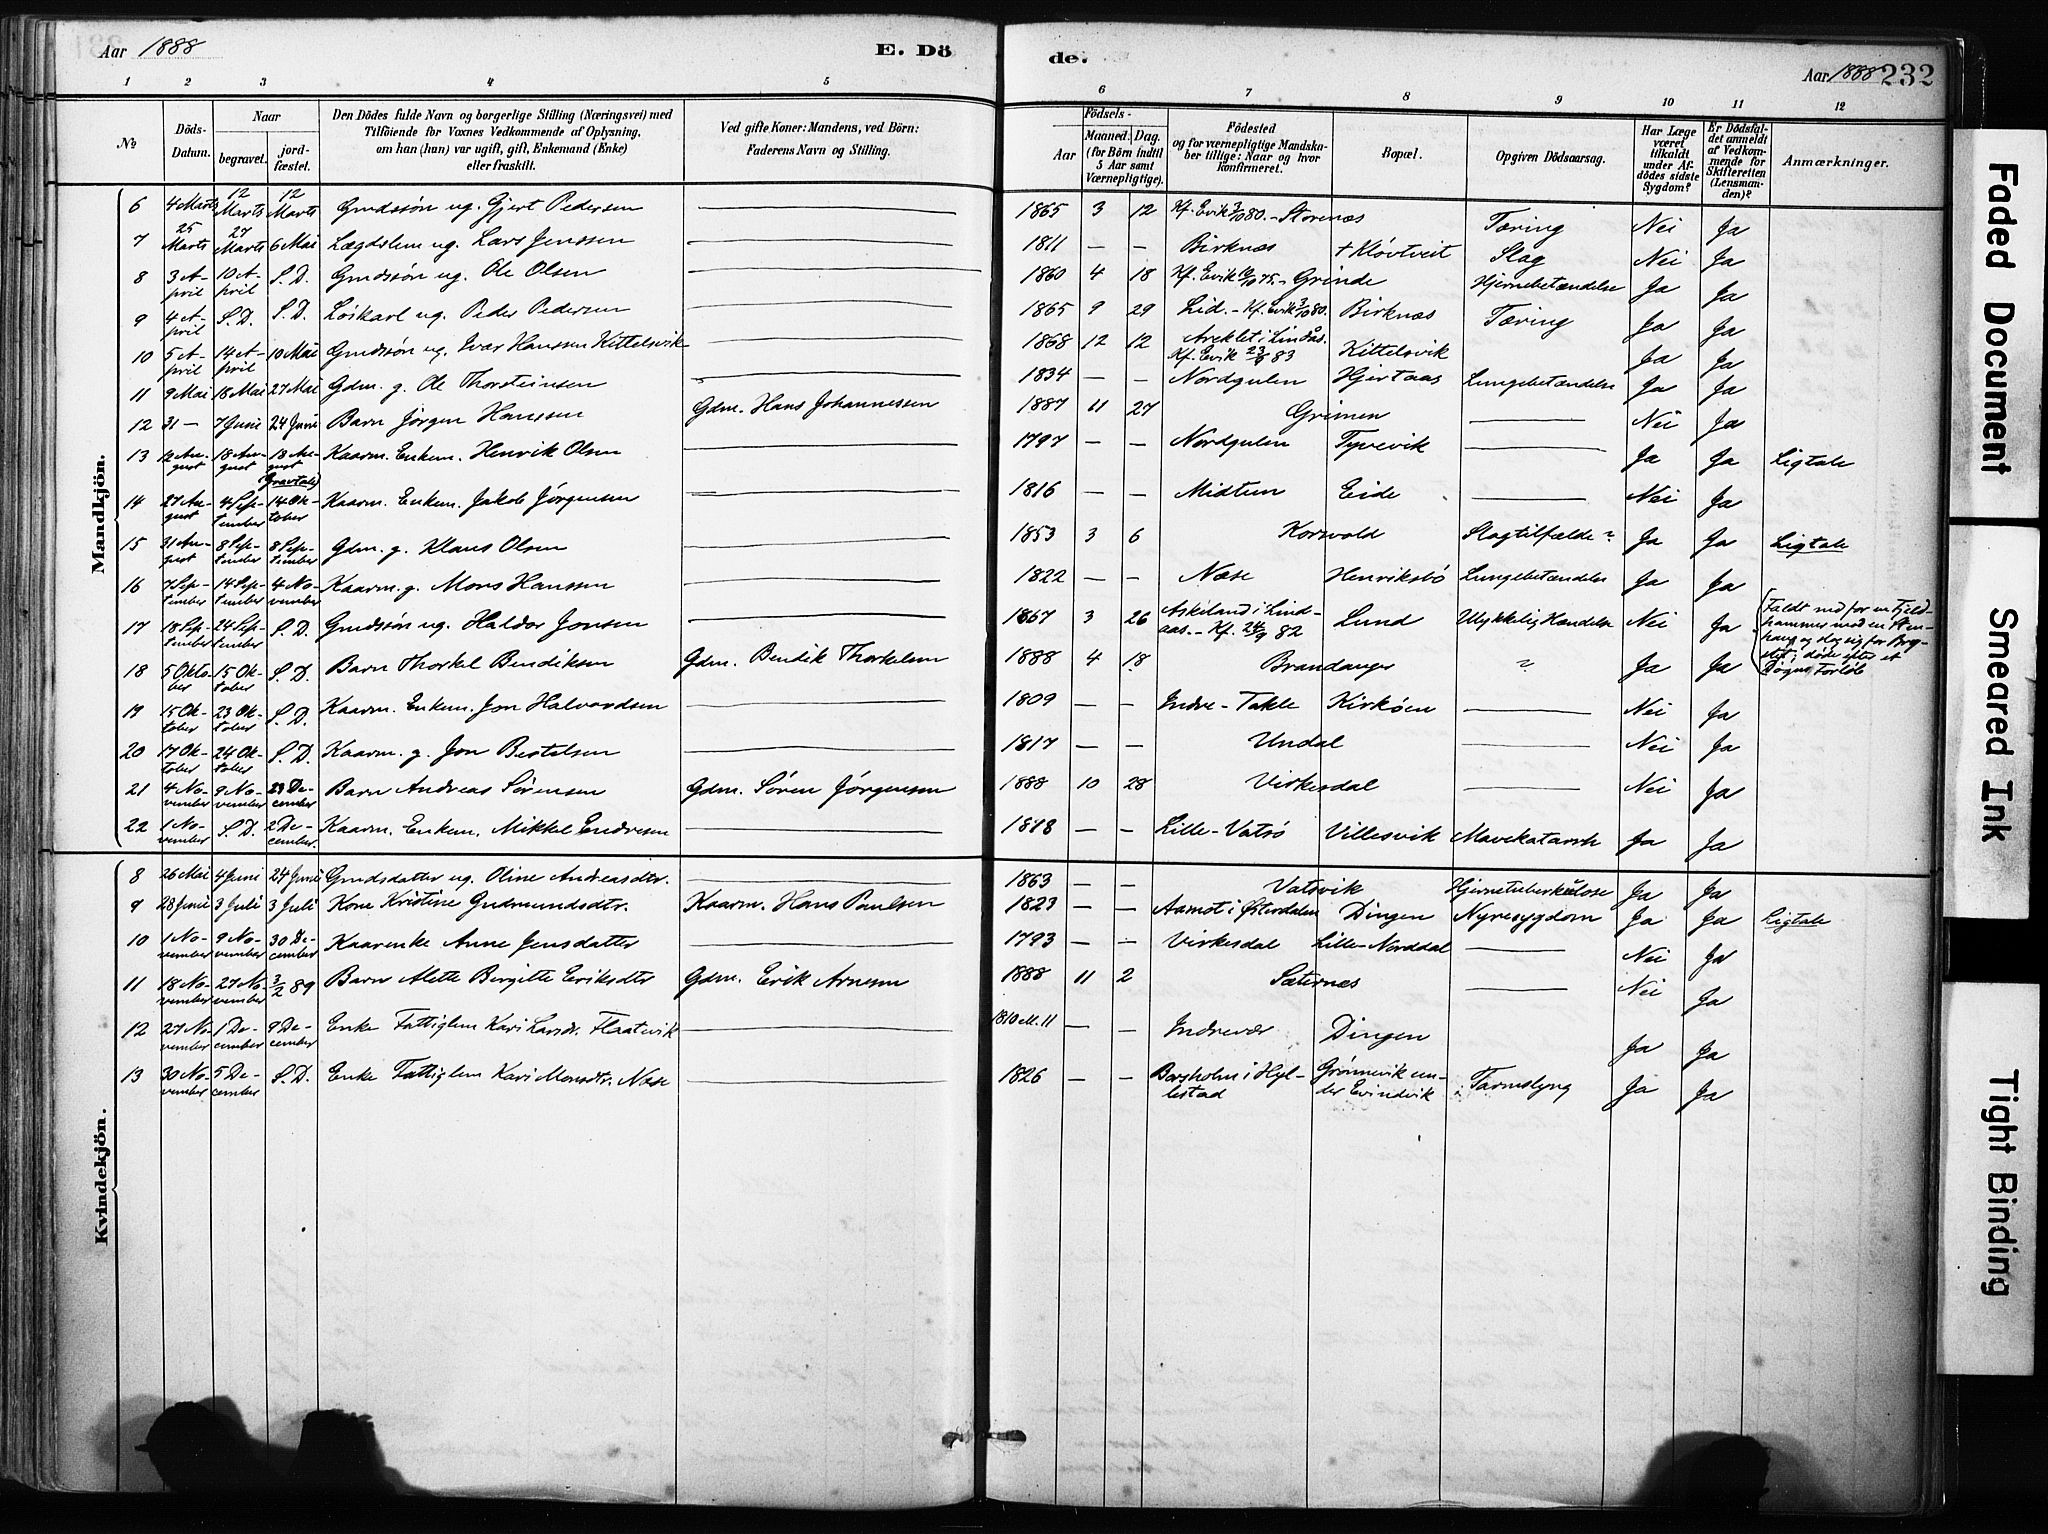 Aar 1888 E. Dö de. Aar 1888 232
1 2 3 4 5 6 7 8 9 10 11 12
No
Döds-Datum.
Naar
begravet.
jordfæstet.
Den Dödes fulde Navn og borgerlige Stilling (Næringsvei) med
Tilföiende for Voxnes Vedkommende af Oplysning,
om han (hun) var ugift, gift, Enkemand (Enke)
eller fraskilt.
Ved gifte Koner: Mandens, ved Börn:
Faderens Navn og Stilling.
Födsels-
Aar
Maaned. Dag.
(for Börn indtil
5 Aar samt
Værnepligtige).
Födested
og for værnepligtige Mandska-
ber tillige: Naar og hvor
konfirmeret.
Bopæl.
Opgiven Dödsaarsag.
Har Læge
været
tilkaldt
under Af-
dödes sidste
Sygdom?
Er Dödsfal-
det anmeldt
af Vedkom-
mende for
Skifteretten
(Lensman-
den)?
Anmærkninger.
Mandkjön.
6 4 Marts 12 Marts 12 Marts Grndssøn ug. Gjert Pedersen — 1865 3 12 Kf. Evik 3/10 80. - Storenæs Tæring Nei Ja
7 25 Marts 27 Marts 6 Mai Lægdslem ug. Lars Jenssen — 1811 — — Birknæs + Kløvtveit Slag Nei Ja
8 3 April 10 April S. D. Grndssøn ug. Ole Olsen — 1860 4 18 Kf. Evik 10/10 75. - Grinde Hjernebetændelse Ja Ja
9 4 April S. D. S. D. Løskarl ug. Peder Pedersen — 1865 9 29 Lid. - Kf. Evik 3/10 80. Birknæs Tæring Ja Ja
10 5 April 14 April 10 Mai Grndssøn ug. Ivar Hanssen Kittelsvik — 1868 12 12 Areklet i Lindås. Kf. Evik 83 Kittelsvik Ja Ja
11 9 Mai 18 Mai 27 Mai Gdm. g. Ole Thorsteinsen — 1834 — — Nordgulen Hjertaas Lungebetændelse Ja Ja
12 31 — 7 Juni 24 Juni Barn Jørgen Hanssen Gdm. Hans Johannessen 1887 11 27 Grimen — Nei Ja
13 12 August 18 August 18 August (Gravtale) Kaarm. Enkem. Henrik Olsen — 1797 — — Nordgulen Tyvevik — Ja Ja Ligtale
14 27 August 4 September 14 Oktober Kaarm. Enkem. Jakob Jørgensen — 1816 — — Midtun Eide — Nei Ja
15 31 August 8 September 8 September Gdm. g. Klaus Olsen — 1853 3 6 Korsvold Slagtilfælde? Ja Ja Ligtale
16 7 September 14 September 4 November Kaarm. g. Mons Hanssen — 1822 — — Næse Henriksbö Lungebetændelse Ja Ja
17 18 September 24 September S. D. Grndssøn ug. Haldor Jonsen — 1867 3 26 Askeland i Lindaas. - Kf. 24/9 82 Lund Ulykkelig Hændelse Nei Ja Faldt ned for en Fjeldhammer mod en Stenhaug og slog sig for Brystet; døde efter et Døgns Forløb
18 5 Oktober 15 Oktober S. D. Barn Thorkel Bendiksen Gdm. Bendik Thorkelsen 1888 4 18 Brandanger ? Ja Ja
19 15 Oktober 23 Oktober S. D. Kaarm. Enkem. Jon Halvardsen — 1809 — — Indre-Takle Kirkøen — Nei Ja
20 17 Oktober 24 Oktober S. D. Kaarm. g. Jon Bertelsen — 1817 — — Undal — Nei Ja
21 4 November 9 November 29 December Barn Andreas Sørensen Gdm. Søren Jørgensen 1888 10 28 Virkesdal — Nei Ja
22 1 November S. D. 2 December. Kaarm. Enkem. Mikkel Endresen — 1818 — — Lille-Vatsö Villesvik Mavekatarrh Ja Ja
Kvindekjön.
8 26 Mai 4 Juni 24 Juni Grndsdatter ug. Oline Andreasdtr. — 1863 — — Vatsvik Hjernetuberkulose Ja Ja
9 28 Juni 3 Juli 3 Juli Kone Kristine Gudmundsdtr. Kaarm. Hans Paulsen 1823 — — Aamot i Østerdalen Dingen Nyresygdom Ja Ja Ligtale
10 1 November 9 November 30 December Kaarenke Anne Jensdatter — 1793 — — Virkesdal Lille-Norddal — Nei Ja
11 18 November 27 November 3/2 89 Barn Alette Birgitte Eriksdtr Gdm. Erik Arnesen 1888 11 2 Sæternæs — Nei Ja
12 27 November 1 December 9 December Enke Fattiglem Kari Larsdr. Flaatevik — 1810 M. 11 — — Indrevær Dingen Ja Ja
13 30 November 5 December S. D. Enke Fattiglem Kari Monsdtr. Næse — 1826 — — Borgholm i Hyllestad Grønnevik under Evindvik Tarmslyng Ja Ja
Faded Document
Smeared Ink
Tight Binding